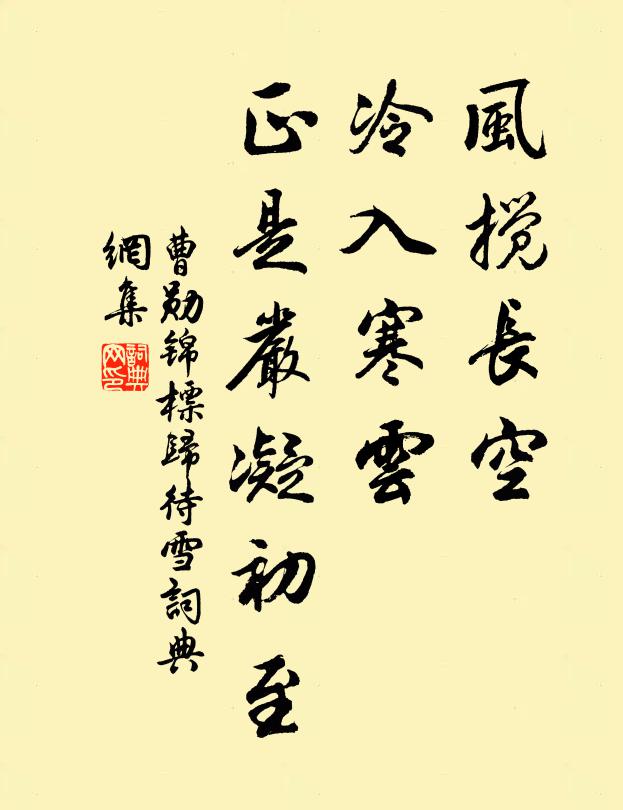 風攪長空
冷入寒雲
正是嚴凝初至
曹勛锦標歸待雪詞典
網集
詞典
网印